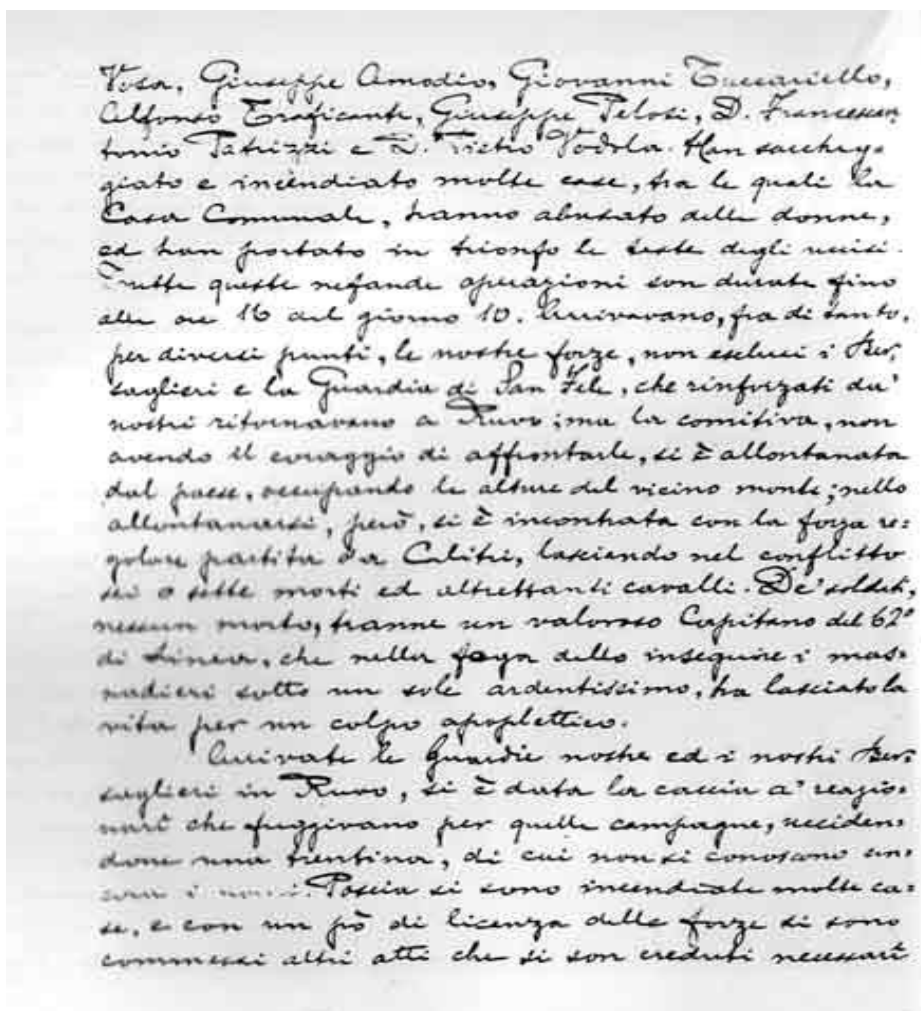 Vosa, Giuseppe Amodio, Giovanni Tuccariello,
Alfonso Traficante, Giuseppe Pelosi, D. Francescan
tonio Patrizzi e D. Pietro Vodola. Han saccheg=
giato e incendiato molte case, tra le quali la
Casa Comunale, hanno abusato delle donne,
ed han portato in trionfo le teste degli uccisi.
Tutte queste nefande operazioni son durate fino
alle ore 16 del giorno 10. Arrivavano, fra di tanto,
per diversi punti, le nostre forze, non esclusi i Ber=
saglieri e la Guardia di San Fele, che rinforzati da'
nostri ritornavano a Ruvo; ma la comitiva, non
avendo il coraggio di affrontarle, si è allontanata
dal paese, occupando le alture del vicino monte; nello
allontanarsi, però, si è incontrata con la forza re=
golare partita da Calitri, lasciando nel conflitto
sei o sette morti ed altrettanti cavalli. De' soldati,
nessun morto, tranne un valoroso Capitano del 62º
di Linea, che nella foga dello inseguire i mas=
nadieri sotto un sole ardentissimo, ha lasciato la
vita per un colpo apoplettico.
Arrivate le Guardie nostre ed i nostri Ber=
saglieri in Ruvo, si è data la caccia a' reazio=
narî che fuggivano per quelle campagne, ucciden=
done una trentina, di cui non si conoscono an=
cora i nomi. Poscia si sono incendiate molte ca=
se, e con un pò di licenza delle forze si sono
commessi altri atti che si son creduti necessarî